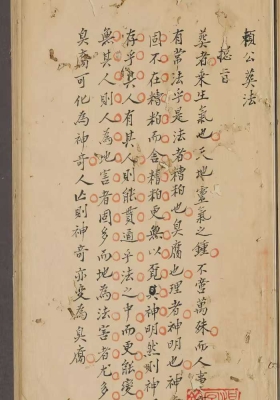 賴公葬法
總言
葬者乘生氣也天地靈氣之鍾不啻萬殊而人事
有常法乎是法者糟粕也臭腐也理者神明也神奇
固不在糟粕而舍糟粕更無以覓其神明然則神
存乎其人有其人則能貫通乎法之中而更能變
無其人則人為地害者固多而地為法害者尤多
臭腐可化為神奇人亡則神奇亦變為臭腐